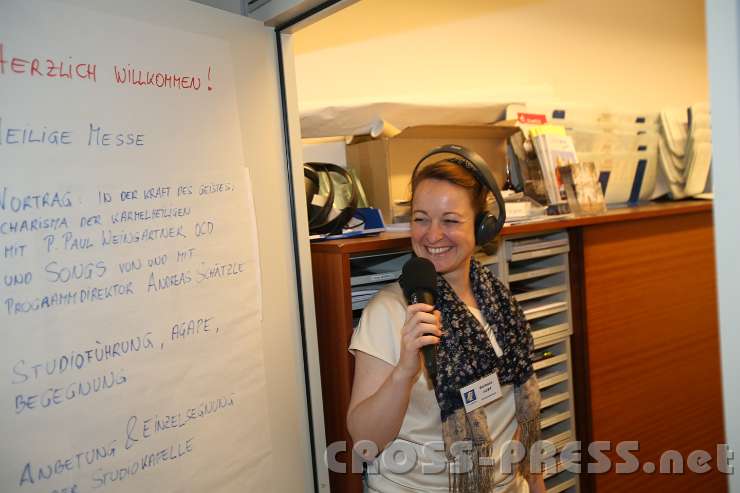 HERZLICH WILLKOMMEN!
HEILIGE MESSE
VORTRAG: IN DER KRAFT DES GEISTES,
CHARISMA DER KARMELHEILIGEN
MIT P. PAUL WEINGARTNER OCD
UND SONGS VON UND MIT
PROGRAMMDIREKTOR ANDREAS SCHÄTZLE
STUDIOFÜHRUNG, AGAPE,
BEGEGNUNG
ANBETUNG & EINZELSEGNUNG
DER STUDIOKAPELLE
CROSS-PRESS.net